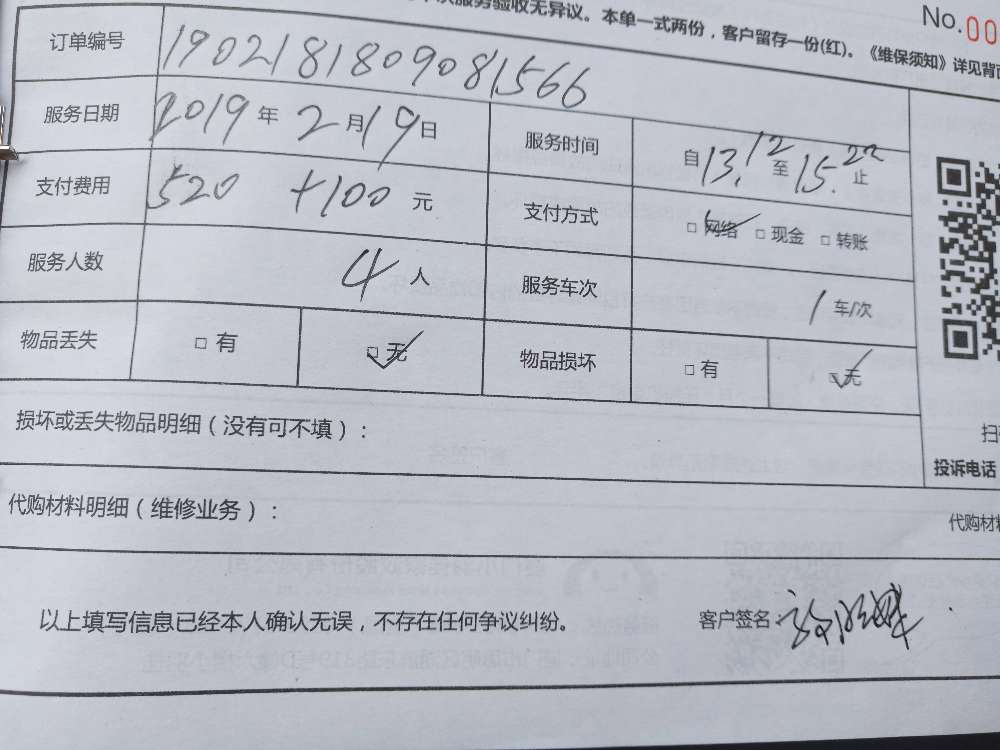 服务验收无异议。本单一式两份，客户留存一份(红)。《维保须知》详见背面
No.00
订单编号 190218180909081566
服务日期 2019年2月19日 服务时间 自13.12至15.22止
支付费用 520 +100 元 支付方式 □网络 □现金 □转账
服务人数 4人 服务车次 1车/次
物品丢失 □有 □无 物品损坏 □有 □无
损坏或丢失物品明细（没有可不填）：
投诉电话
代购材料明细（维修业务）： 代购材料
以上填写信息已经本人确认无误，不存在任何争议纠纷。 客户签名：